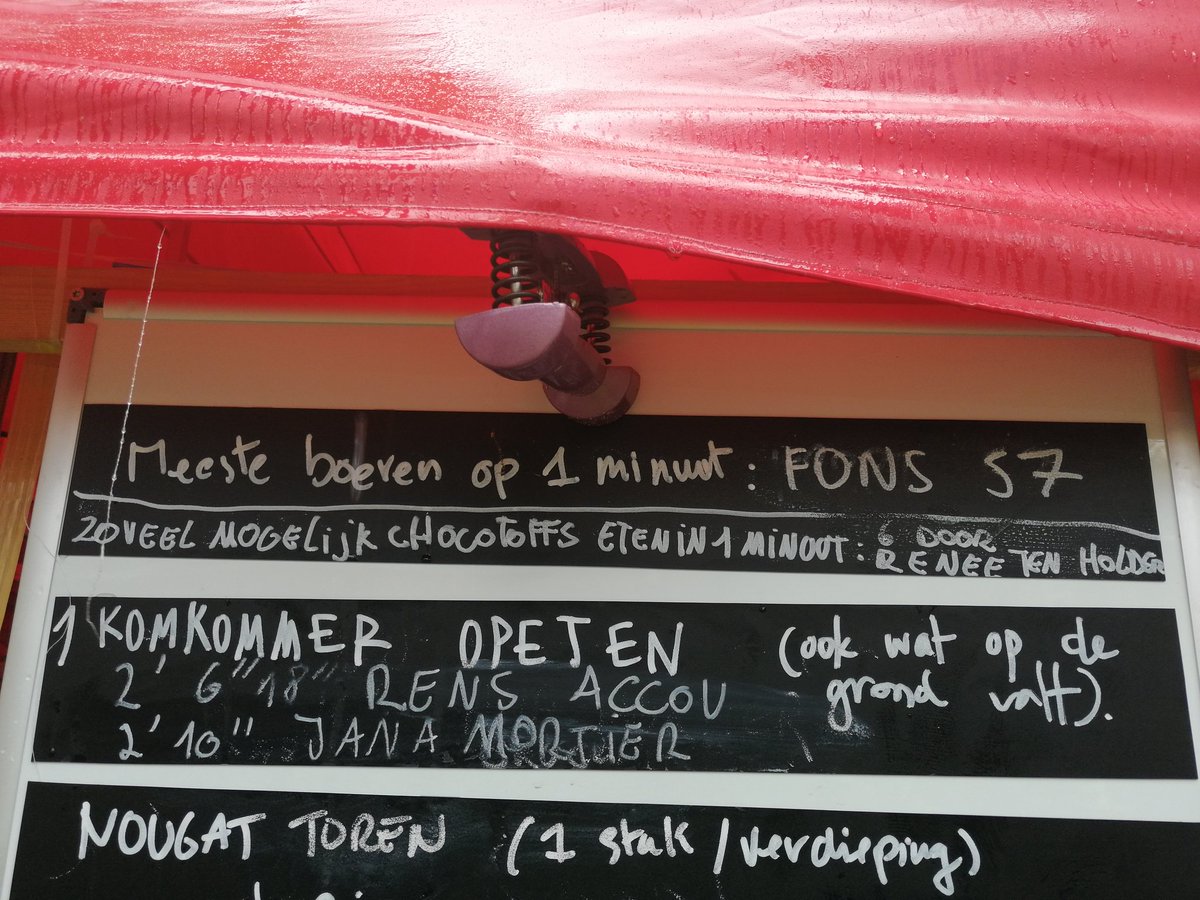 Meeste boeren op 1 minuut: FONS 57
ZOVEEL MOGELIJK CHOCOTOFFS ETEN IN 1 MINUUT: 6 DOOR
RENEE TEN HOLDER
1 KOMKOMMER OPETEN (ook wat op de
grond valt).
2' 6" 18''' RENS ACCOU
2' 10" JANA MORTIER
NOUGAT TOREN (1 stuk/verdieping)